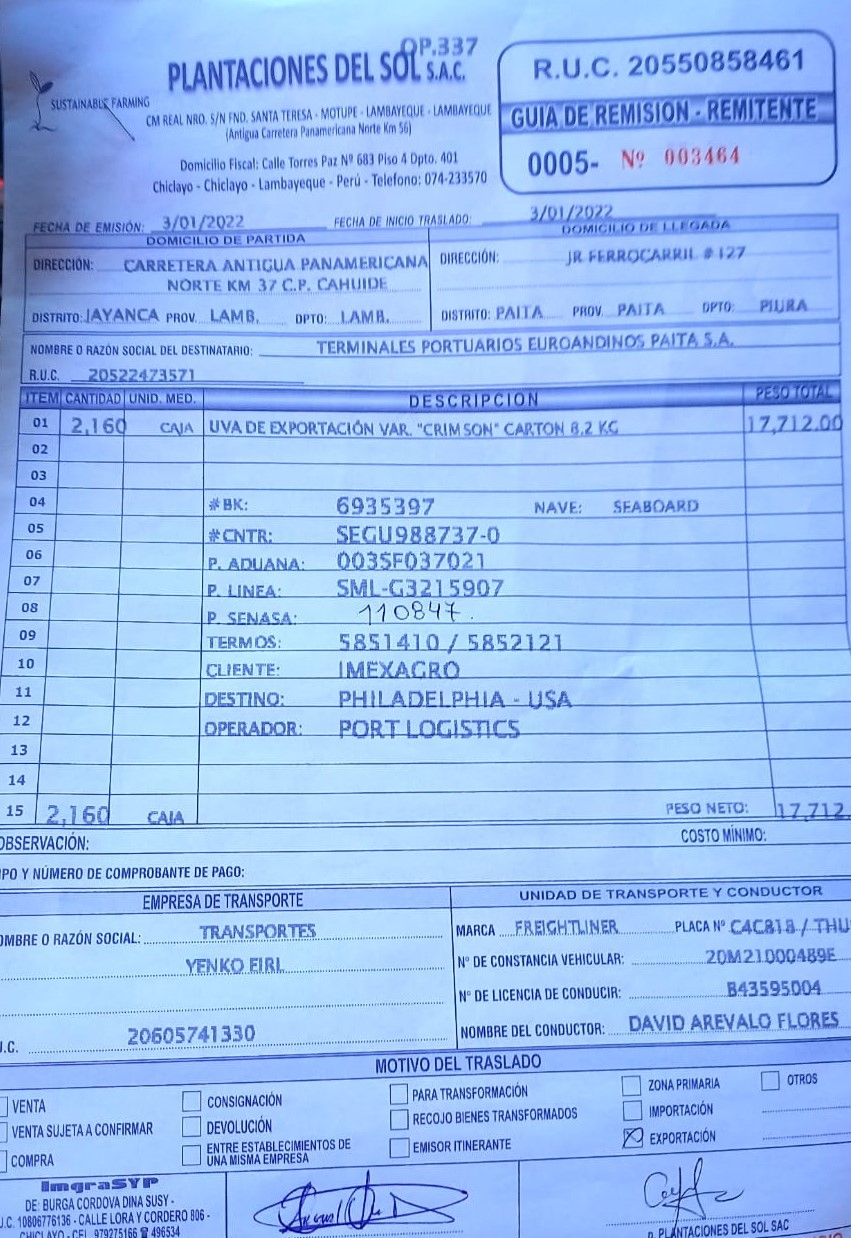 OP.337
PLANTACIONES DEL SOL S.A.C.
SUSTAINABLE FARMING
CM REAL NRO. S/N FND. SANTA TERESA - MOTUPE - LAMBAYEQUE - LAMBAYEQUE
(Antigua Carretera Panamericana Norte Km 56)
Domicilio Fiscal: Calle Torres Paz Nº 683 Piso 4 Dpto. 401
Chiclayo - Chiclayo - Lambayeque - Perú - Telefono: 074-233570
R.U.C. 20550858461
GUIA DE REMISION - REMITENTE
0005- Nº 003464
FECHA DE EMISIÓN: 3/01/2022 FECHA DE INICIO TRASLADO: 3/01/2022
DOMICILIO DE PARTIDA
DIRECCIÓN: CARRETERA ANTIGUA PANAMERICANA
NORTE KM 37 C.P. CAHUIDE
DISTRITO: JAYANCA PROV. LAMB. DPTO: LAMB.
DOMICILIO DE LLEGADA
DIRECCIÓN: JR FERROCARRIL # 127
DISTRITO: PAITA PROV. PAITA DPTO: PIURA
NOMBRE O RAZÓN SOCIAL DEL DESTINATARIO: TERMINALES PORTUARIOS EUROANDINOS PAITA S.A.
R.U.C. 20522473571
ITEM CANTIDAD UNID. MED. DESCRIPCION PESO TOTAL
01 2,160 CAJA UVA DE EXPORTACIÓN VAR. "CRIMSON" CARTON 8.2 KG 17,712.00
02
03
04 #BK: 6935397 NAVE: SEABOARD
05 #CNTR: SEGU988737-0
06 P. ADUANA: 003SF037021
07 P. LINEA: SML-G3215907
08 P. SENASA: 110847.
09 TERMOS: 5851410 / 5852121
10 CLIENTE: IMEXAGRO
11 DESTINO: PHILADELPHIA - USA
12 OPERADOR: PORT LOGISTICS
13
14
15 2,160 CAJA PESO NETO: 17,712.
OBSERVACIÓN: COSTO MÍNIMO:
IPO Y NÚMERO DE COMPROBANTE DE PAGO:
EMPRESA DE TRANSPORTE
OMBRE O RAZÓN SOCIAL: TRANSPORTES
YENKO EIRL
U.C. 20605741330
UNIDAD DE TRANSPORTE Y CONDUCTOR
MARCA FREIGHTLINER PLACA Nº C4C818 / THU
N° DE CONSTANCIA VEHICULAR: 20M21000489E
N° DE LICENCIA DE CONDUCIR: B43595004
NOMBRE DEL CONDUCTOR: DAVID AREVALO FLORES
MOTIVO DEL TRASLADO
VENTA CONSIGNACIÓN PARA TRANSFORMACIÓN ZONA PRIMARIA OTROS
VENTA SUJETA A CONFIRMAR DEVOLUCIÓN RECOJO BIENES TRANSFORMADOS IMPORTACIÓN
COMPRA ENTRE ESTABLECIMIENTOS DE UNA MISMA EMPRESA EMISOR ITINERANTE EXPORTACIÓN
ImgraSYP
DE: BURGA CORDOVA DINA SUSY -
U.C. 10806776136 - CALLE LORA Y CORDERO 806 -
CHICLAYO - CEL. 979275166 ☎ 496534
p. PLANTACIONES DEL SOL SAC